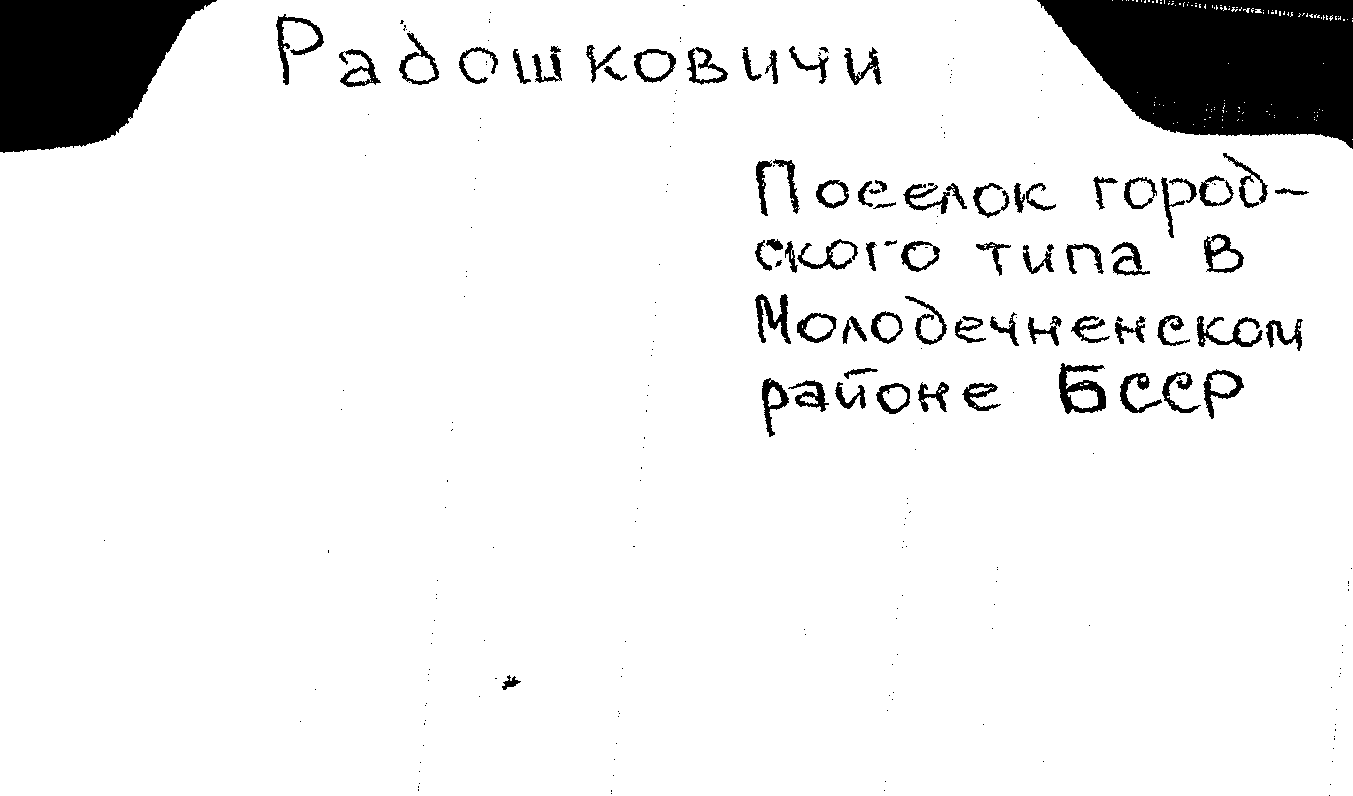 Радошковичи
Поселок город-
ского типа в
Молодечненском
районе БССР